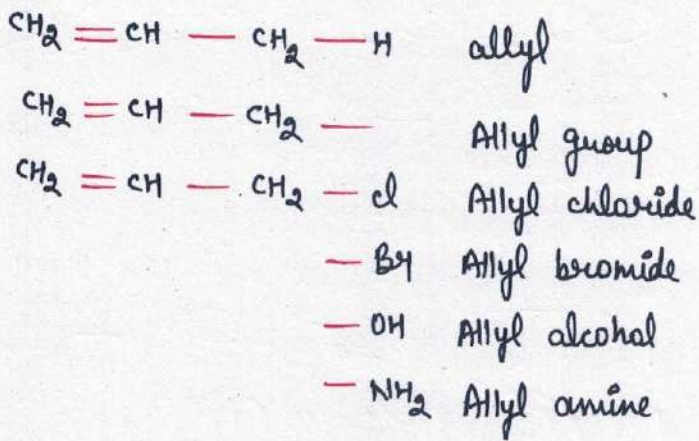 CH₂ = CH — CH₂ — H allyl
CH₂ = CH — CH₂ — Allyl group
CH₂ = CH — CH₂ — Cl Allyl chloride
— Br Allyl bromide
— OH Allyl alcohol
— NH₂ Allyl amine